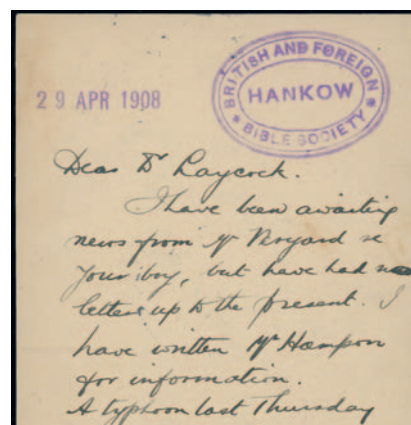 29 APR 1908
BRITISH AND FOREIGN
HANKOW
BIBLE SOCIETY
Dear Dr Laycock.
I have been awaiting
news from Mr Veryard re
your iboy, but have had no
letters up to the present. I
have written Mr Hampson
for information.
A typhoon last Thursday